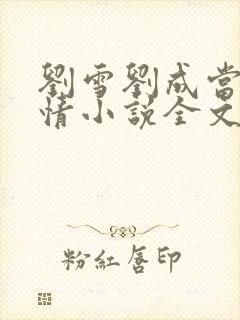 劉雪劉成當
情小說全文
粉紅唇印